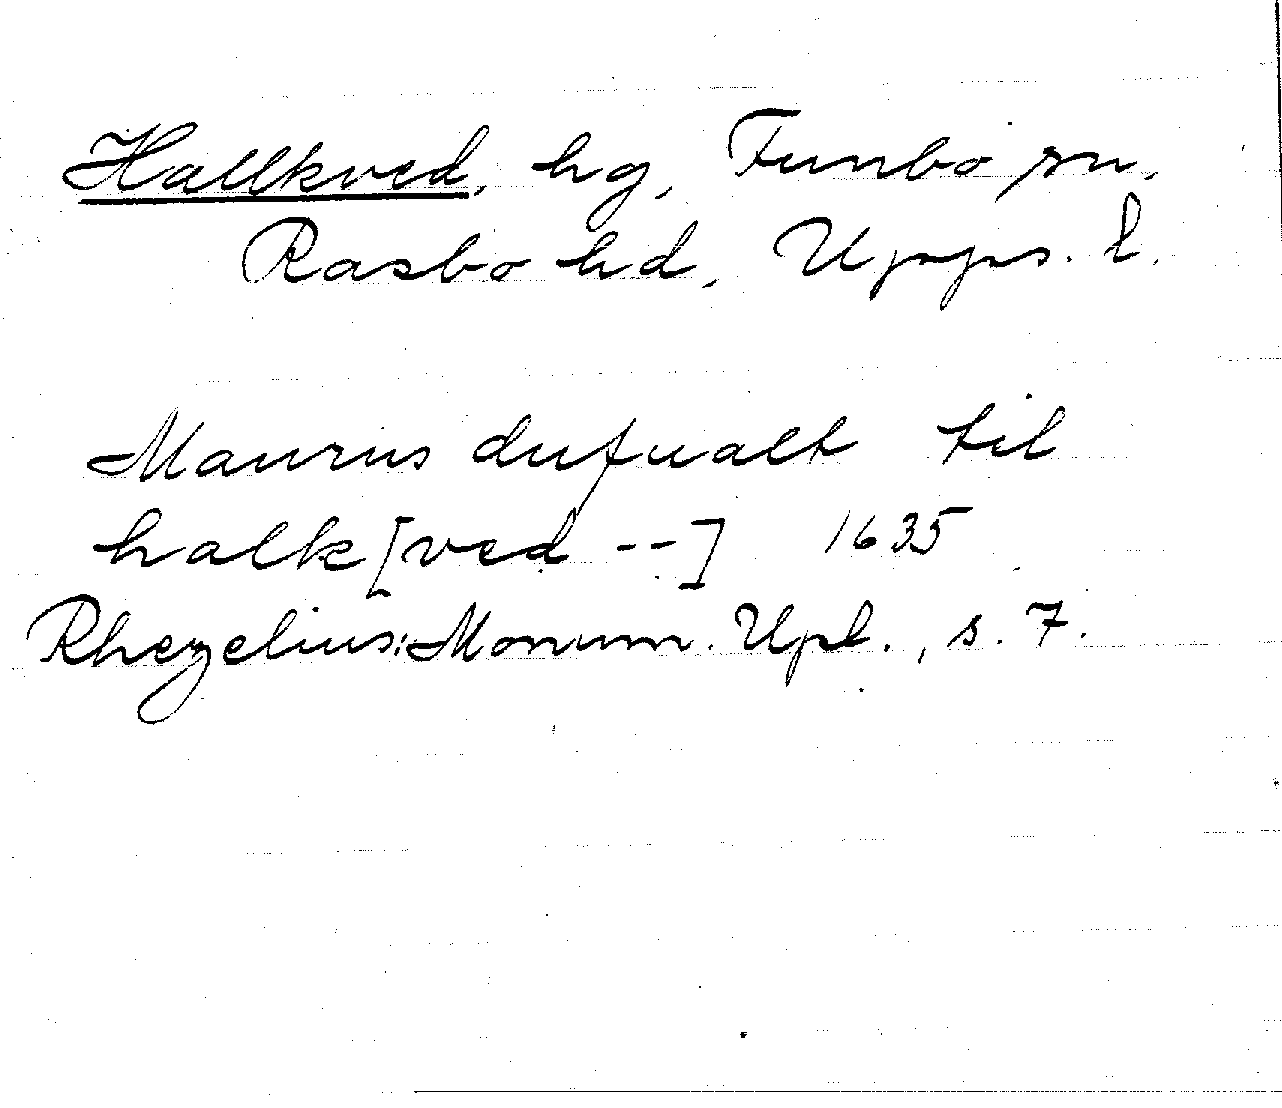 Hallkved, hg, Funbo sn.
Rasbo hd, Upps. l.
Maurus dufualt til
halk[ved --] 1635
Rhezelius: Monum. Upl., s. 7.